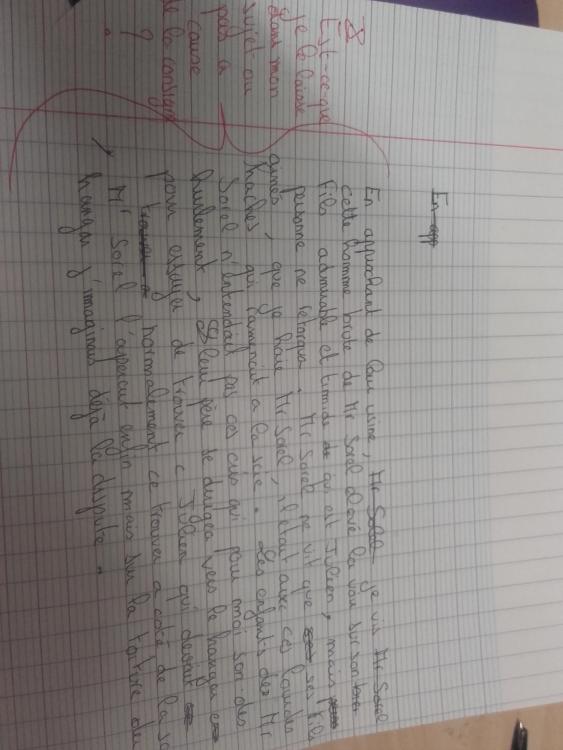 En app
En approchant de leur usine, Mr Sorel je vis Mr Sorel
cette homme brute de Mr Sorel élevé la voix sur son
fils admirable et timide qui est Julien, mais
personne ne rétorqua. Mr Sorel ne vit que ses fils
ainés, que je haie Mr Sorel, il était avec ces lourdes
haches, qui ramenait a la scie. Les enfants de Mr
Sorel n'entendait pas ces cris qui pour moi son des
hurlement, leur père se dirigea vers le hangar
pour essayer de trouver Julien qui devait
normalement ce trouver a coté de la sc
Mr Sorel l'aperçut enfin mais sur la toiture du
hangar j'imaginais déjà la dispute.
Est-ce-que
je le laisse
dans mon
sujet ou
pas a
cause
de la consigne
?